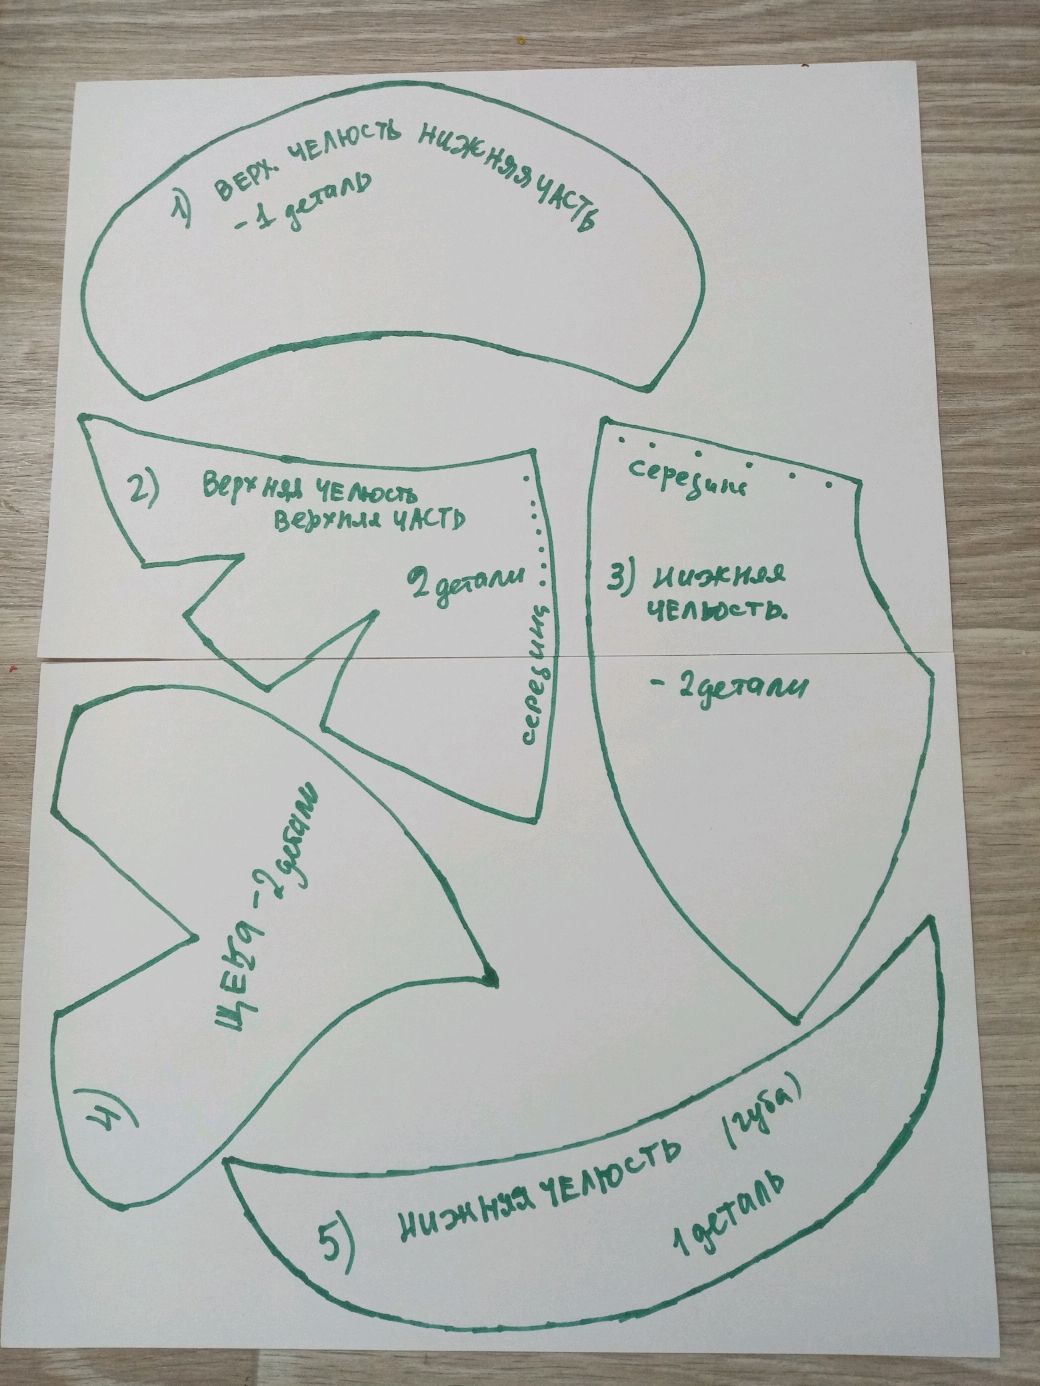 1) ВЕРХ. ЧЕЛЮСТЬ НИЖНЯЯ ЧАСТЬ
- 1 деталь
2) ВЕРХНЯЯ ЧЕЛЮСТЬ
ВЕРХНЯЯ ЧАСТЬ
2 детали
середина
середина
3) НИЖНЯЯ
ЧЕЛЮСТЬ.
- 2 детали
4) ЩЕКА - 2 деталь
5) НИЖНЯЯ ЧЕЛЮСТЬ (губа)
1 деталь